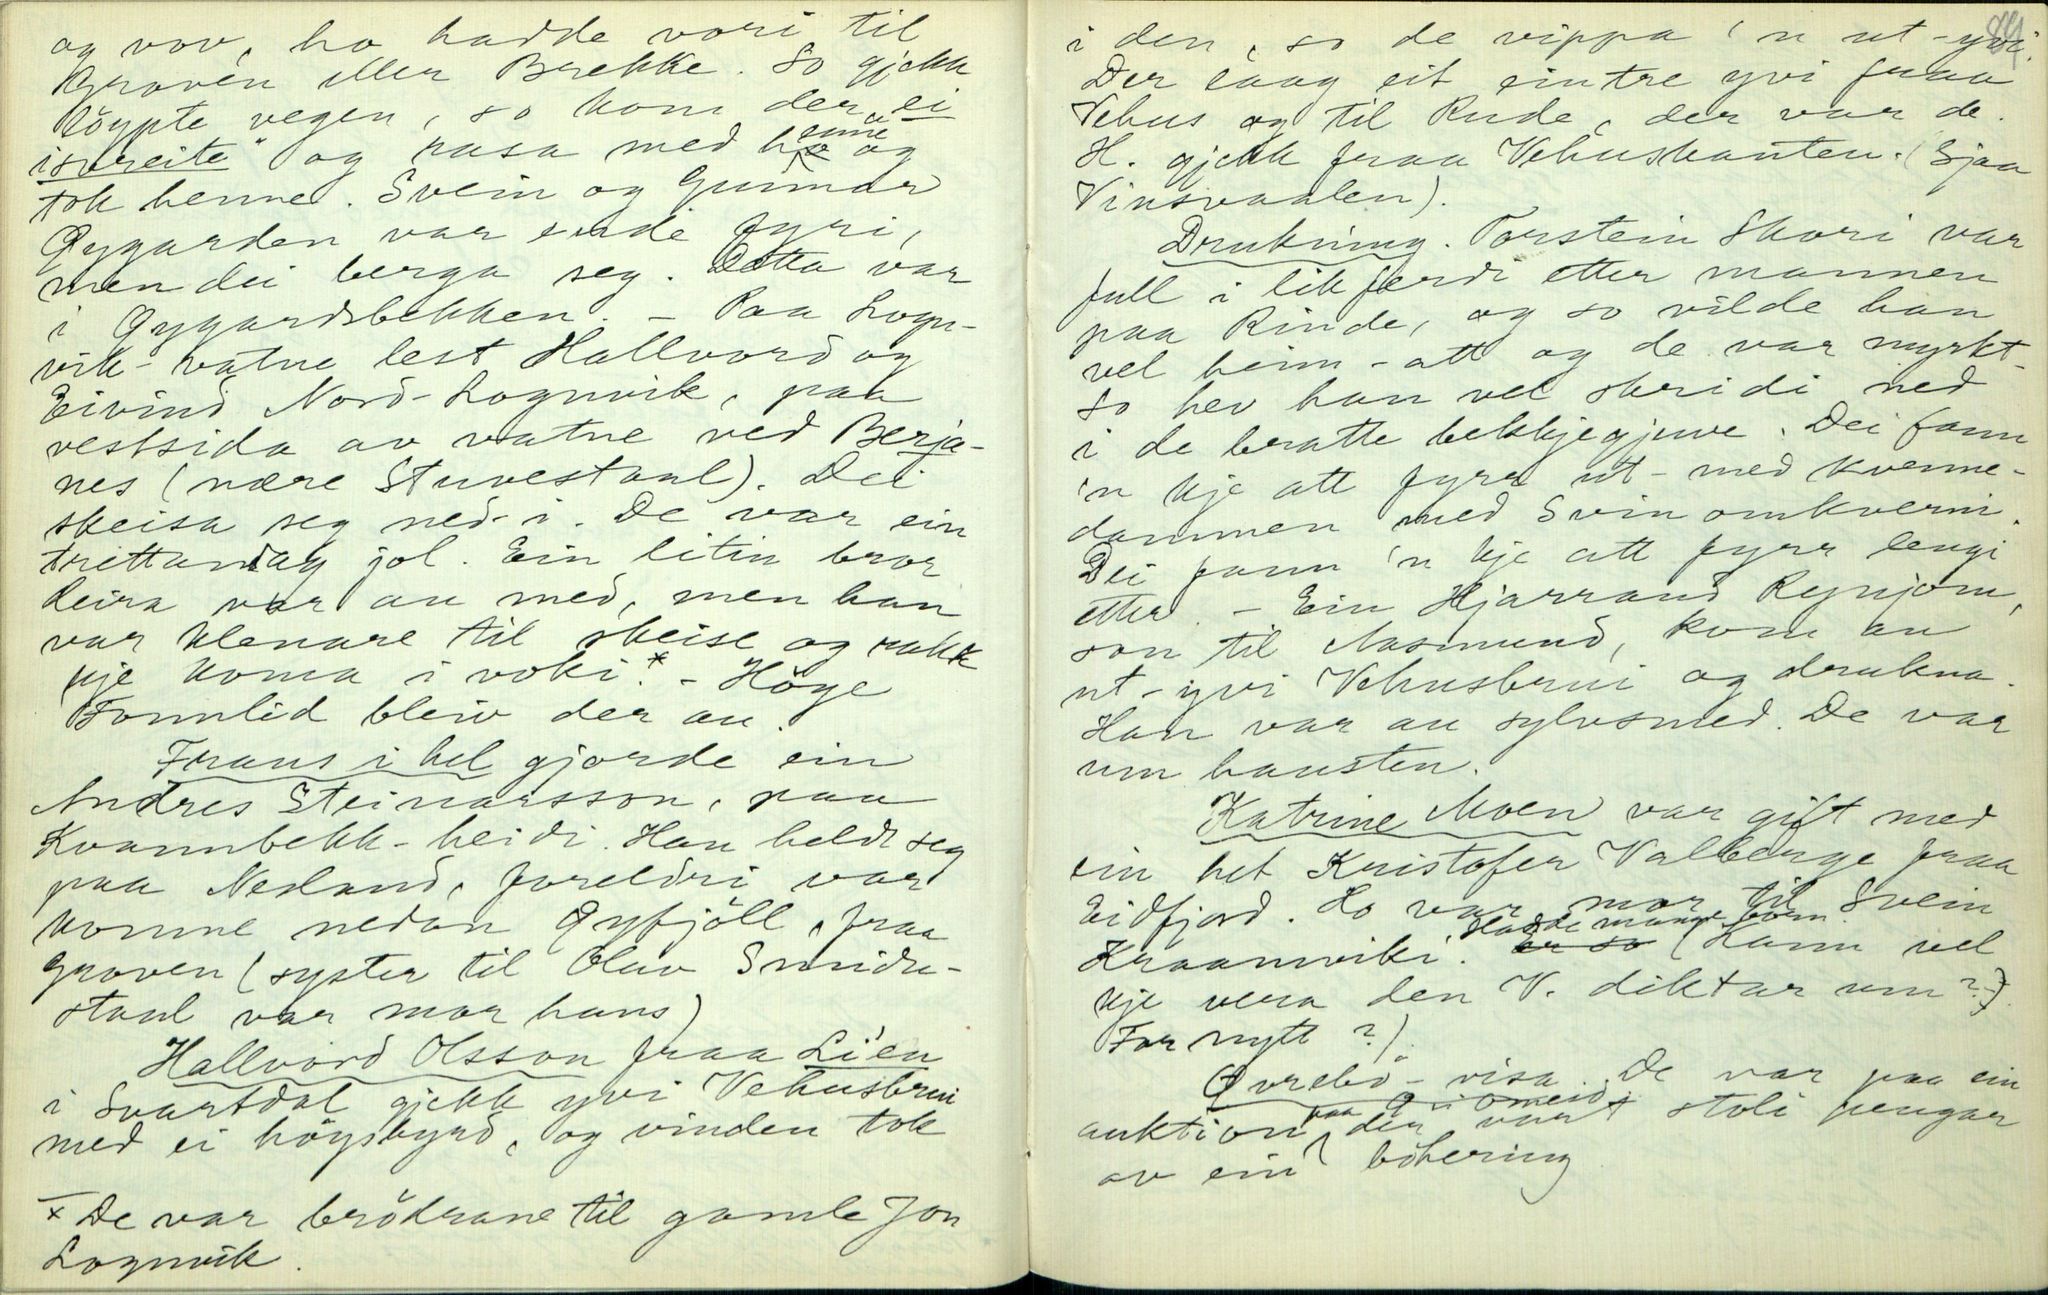 og vov, ho hadde vori til
Groven eller Brekke. So gjekk
löypte vegen, so kom der ei
isvreite" og rasa med henne og
tok henne. Svein og Gunnar
Gygarden var endè fyri,
men dei berga seg. Detta var
i Gygardsbekken. - Paa Logn-
vik-vatne lest Hallvord og
Eivind Nord-Lognvik, paa
vestsida av vatne ved Berja-
nes (nære Stuvestaul). Dei
skeisa seg ned-i. De var ein
trettandag jol. Ein litin bror
deira var au med, men han
var klenare til skeise og rakk
kje koma i voki.* - Höge
Fonnlid bleiv der au.
Frans i hel gjorde ein
Andres Steinarsson, paa
Kvannbekk-heidi. Han heldt seg
paa Nesland, foreldri var
komne nedan Gyfjöll, fraa
Groven (syster til Oluv Smidu-
staul var mor hans)
Hallvord Olsson fraa Li'en
i Svartdal gjekk yvi Vehusbrui
med ei höysbyrd, og vinden tok
x De var brödrane til gamle Jon
Lognvik.
84
i den, so de vippa 'n ut-yvi.
Der laag eit eintre yvi fraa
Vehus og til Rude, der var de.
H. gjekk fraa Vehuskanten. (Sjaa
Vinsvaalen).
Drukning. Torstein Skori var
full i likferdi etter mannen
paa Rinde, og so vilde han
vel heim-att og de var myrkt-
So hev han vel skridi ned
i de bratte bekkjegjuve. Dei fann
'n kje att fyrr ut-med kvenne-
dammen med Svinomkverni.
Dei fann 'n kje att fyrr lengi
etter. - Ein Hjarrand Rynjom,
son til Aasmund, kom au
ut-yvi Vehusbrui og drukna.
Han var au sylvsmed. De var
um hausten.
Katrine Moen var gift med
ein het Kristofer Valberge fraa
Eidfjord. Ho var mor til Svein
Kraamviki. Er so Hadde mange born. (Kann vel
kje vera den V. diktar um?)
Far nytt?)
Övrebö-visa. De var paa ein
auktion paa der vart stoli pengar
av ein böhering